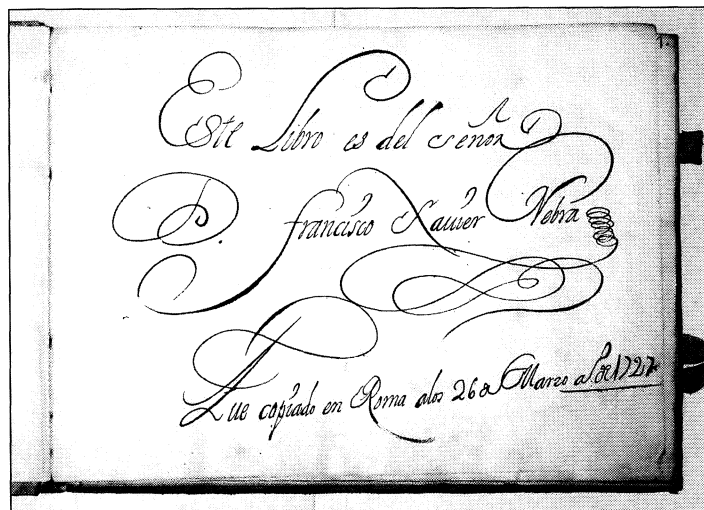 1.
Este Libro es del señor
D. francisco Xauier Nebra
Fue copiado en Roma alos 26 de Marzo aº. de 1727